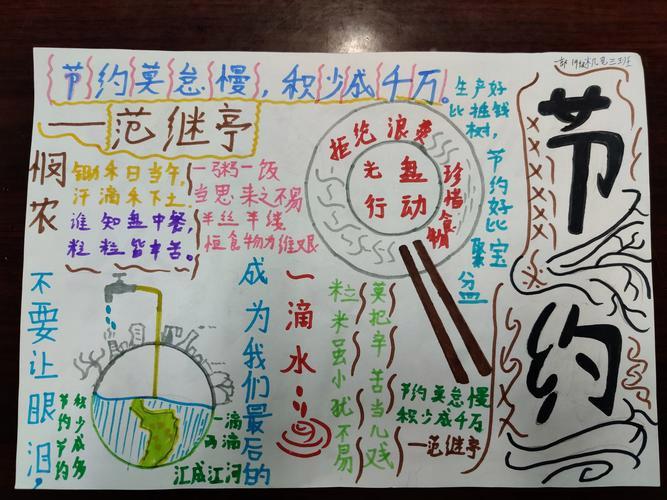 节约莫怠慢，积少成千万。
—范继亭
悯农
锄禾日当午，
汗滴禾下土。
谁知盘中餐，
粒粒皆辛苦。
一粥一饭
当思来之不易
半丝半缕
恒食物力维艰
拒绝浪费
珍惜食物
光盘
行动
生产好
比摇钱
树，
节约好比
聚宝
盆
节约
不要让眼泪，
成为我们最后的
一滴水
粒米虽小犹不易
莫把辛苦当儿戏
节约莫怠慢
积少成千万
—范继亭
积少成多
节约节约
一滴
两滴
汇成江河